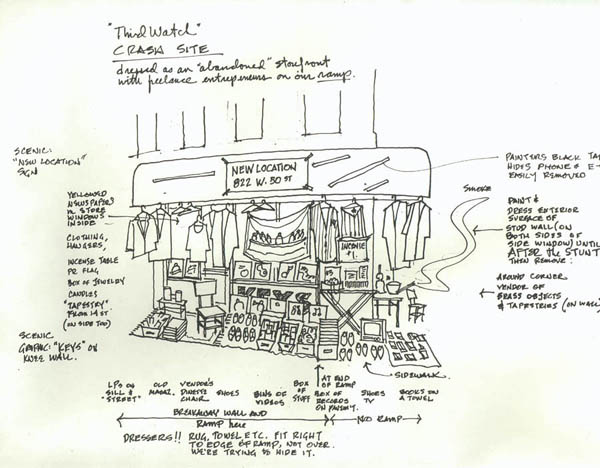 "Third Watch"
CRASH SITE
dressed as an "abandoned" storefront
with freelance entrepreneurs on our ramp.
SCENIC:
"NEW LOCATION"
SIGN
NEW LOCATION
822 W. 30 ST
PAINTERS BLACK TA
HIDES PHONE & E-
EASILY REMOVED
YELLOWED
NEWSPAPERS
IN STORE
WINDOWS
INSIDE
CLOTHING,
HANGERS,
INCENSE TABLE
PR FLAG
BOX OF JEWELRY
CANDLES
"TAPESTRY"
FROM 14 ST
(ON SIDE TOO)
SCENIC
GRAPHIC: "KEYS" ON
KNEE WALL.
INCENSE
$1.
SMOKE
PAINT &
DRESS EXTERIOR
SURFACE OF
STUD WALL (ON
BOTH SIDES OF
SIDE WINDOW) UNTIL
AFTER the STUNT
THEN REMOVE:
AROUND CORNER
VENDOR OF
BRASS OBJECTS
& TAPESTRIES (ON WALL)
SIDEWALK
LPs ON
SILL &
"STREET"
OLD
MAGAZ.
VENDOR'S
DINETTE
CHAIR
SHOES
BINS OF
VIDEOS
BOX
OF
STUFF
AT END
OF RAMP
BOX OF
RECORDS
ON PAVEM'T.
SHOES
TV
BOOKS ON
A TOWEL
BREAKAWAY WALL AND
RAMP here
NO RAMP
DRESSERS!! RUG, TOWEL ETC. FIT RIGHT
TO EDGE OF RAMP, NOT OVER.
WE'RE TRYING TO HIDE IT.